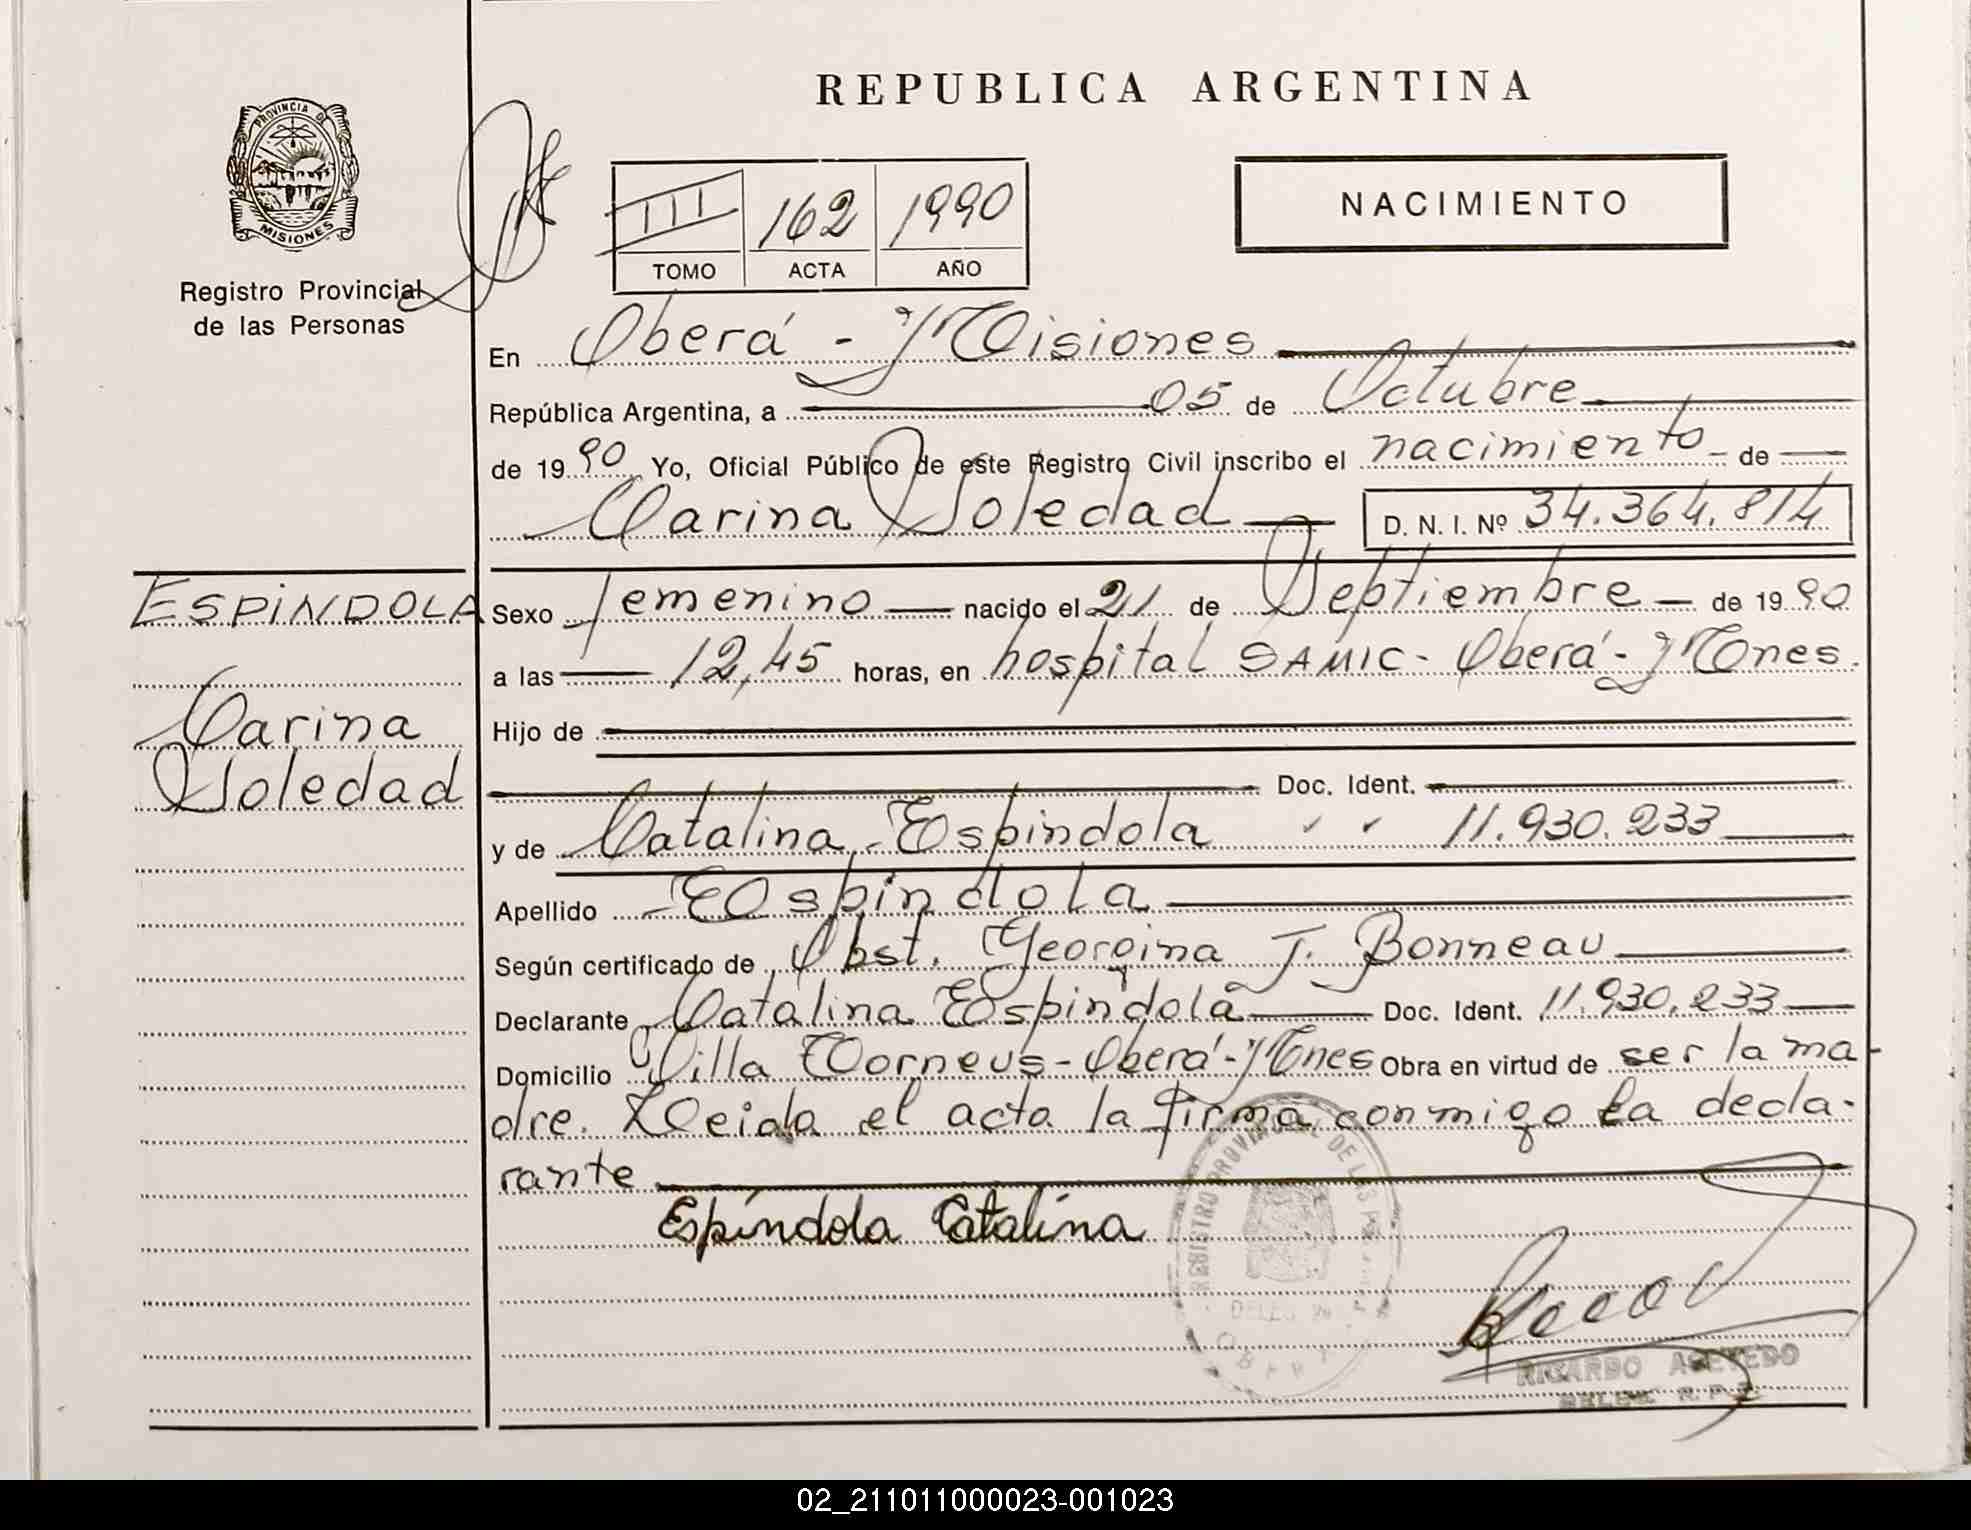 REPUBLICA ARGENTINA
PROVINCIA D
MISIONES
Registro Provincial
de las Personas
III 162 1990
TOMO ACTA AÑO
NACIMIENTO
En Oberá - Misiones
República Argentina, a 05 de Octubre
de 1990 Yo, Oficial Público de este Registro Civil inscribo el nacimiento de
Carina Soledad D. N. I. Nº 34.364.814
ESPINDOLA
Carina
Soledad
Sexo femenino nacido el 21 de Septiembre de 1990
a las 12,45 horas, en hospital SAMIC - Oberá - Mnes.
Hijo de
Doc. Ident.
y de Catalina Espindola " " 11.930.233
Apellido Espindola
Según certificado de Obst. Georgina J. Bonneau
Declarante Catalina Espindola Doc. Ident. 11.930.233
Domicilio Villa Torneus - Oberá - Mnes Obra en virtud de ser la ma-
dre. Leida el acta la firma conmigo la decla-
rante
Espíndola Catalina
REGISTRO PROVINCIAL DE LAS PER
OBERA
RICARDO ACEVEDO
DELEG. R. P. P.
02_211011000023-001023